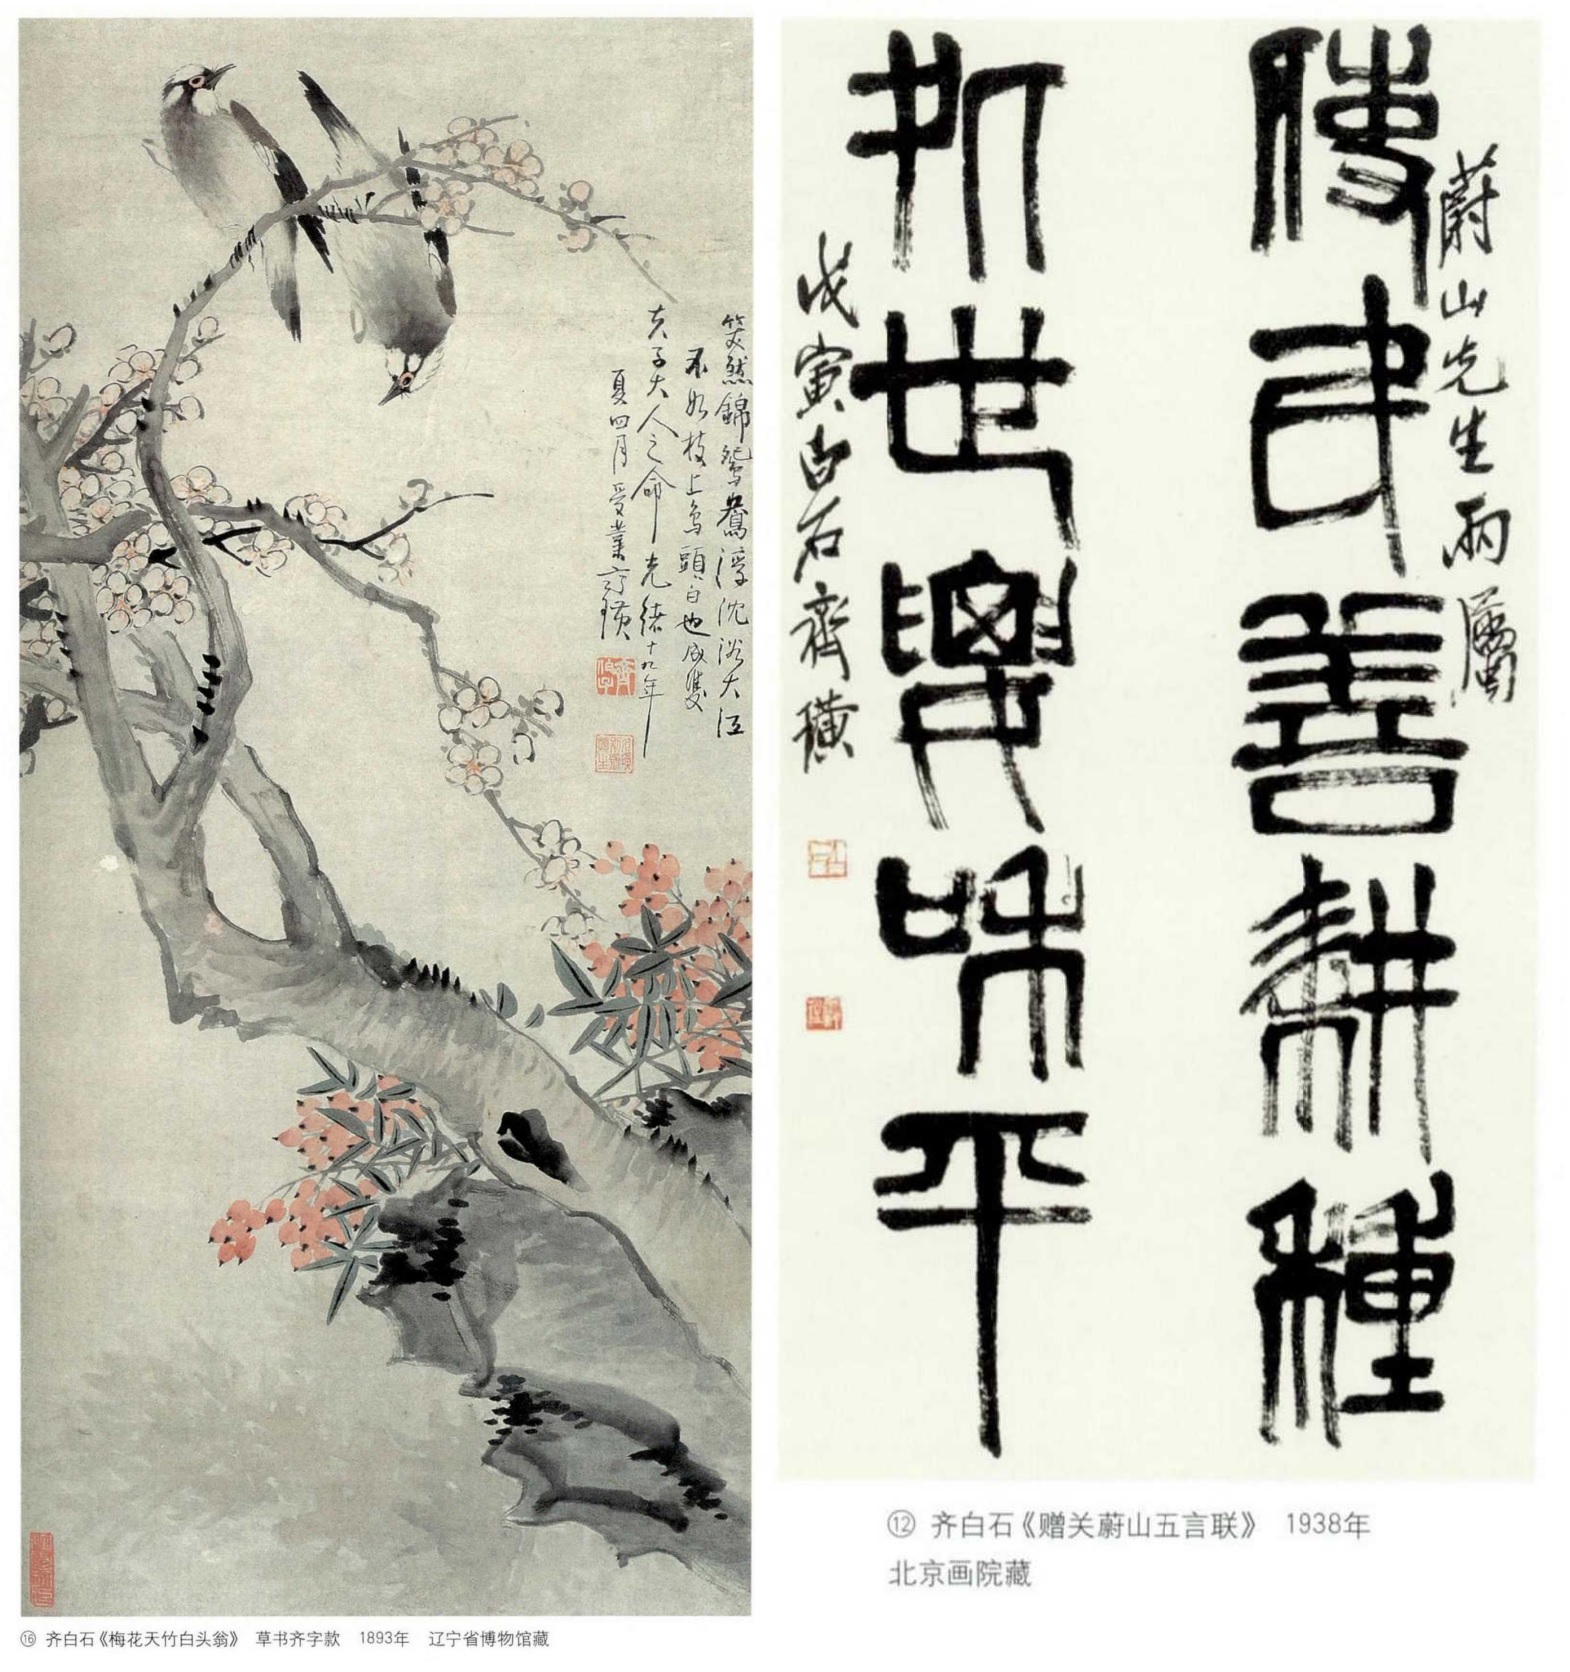 笑煞錦鴛鴦浮沈浴大江
不如枝上鳥頭白也成雙
夫子大人之命光緒十九年
夏四月受業齊璜
⑯ 齐白石《梅花天竹白头翁》 草书齐字款 1893年 辽宁省博物馆藏
蔚山先生兩屬
使民善耕種
世和平
戊寅白石齊璜
⑫ 齐白石《赠关蔚山五言联》 1938年
北京画院藏